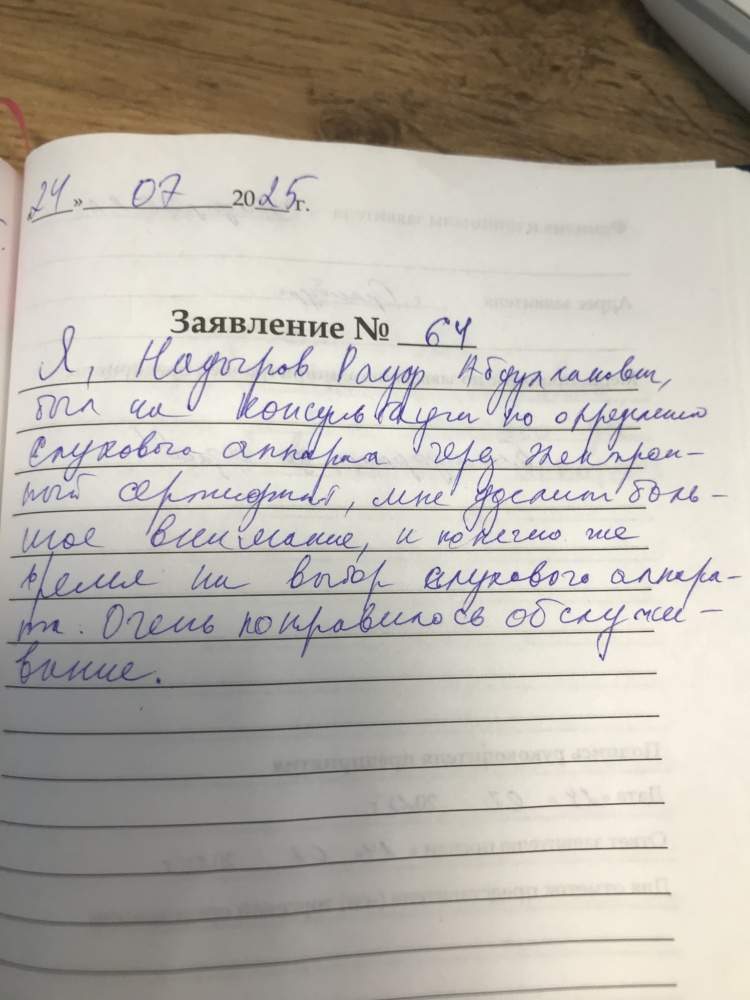 «24» 07 2025г.
Заявление № 64
Я, Надыров Рауф Абдулханович,
был на консультации по определению
слухового аппарата через электрон-
ный сертификат, мне уделили боль-
шое внимание, и конечно же
время на выбор слухового аппара-
та. Очень понравилось обслужи-
вание.